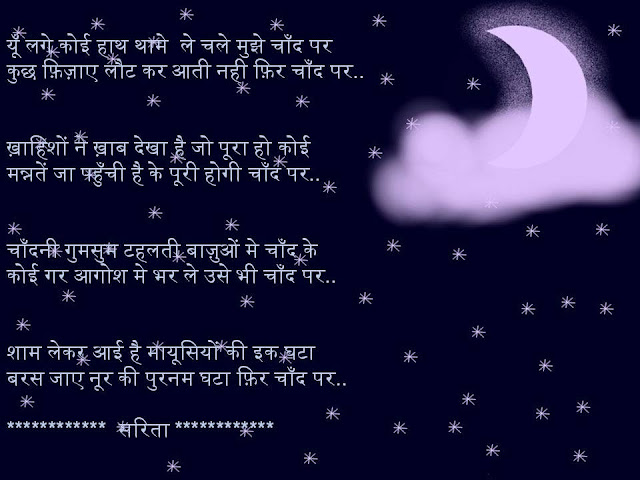 यूँ लगे कोई हाथ थामे ले चले मुझे चाँद पर
कुछ फ़िज़ाए लौट कर आती नही फ़िर चाँद पर..
ख़ाहिशों ने ख़ाब देखा है जो पूरा हो कोई
मन्नतें जा पहुँची है के पूरी होगी चाँद पर..
चाँदनी गुमसुम टहलती बाज़ुओं मे चाँद के
कोई गर आगोश मे भर ले उसे भी चाँद पर..
शाम लेकर आई है मायूसियों की इक घटा
बरस जाए नूर की पुरनम घटा फ़िर चाँद पर..
************ सरिता ************